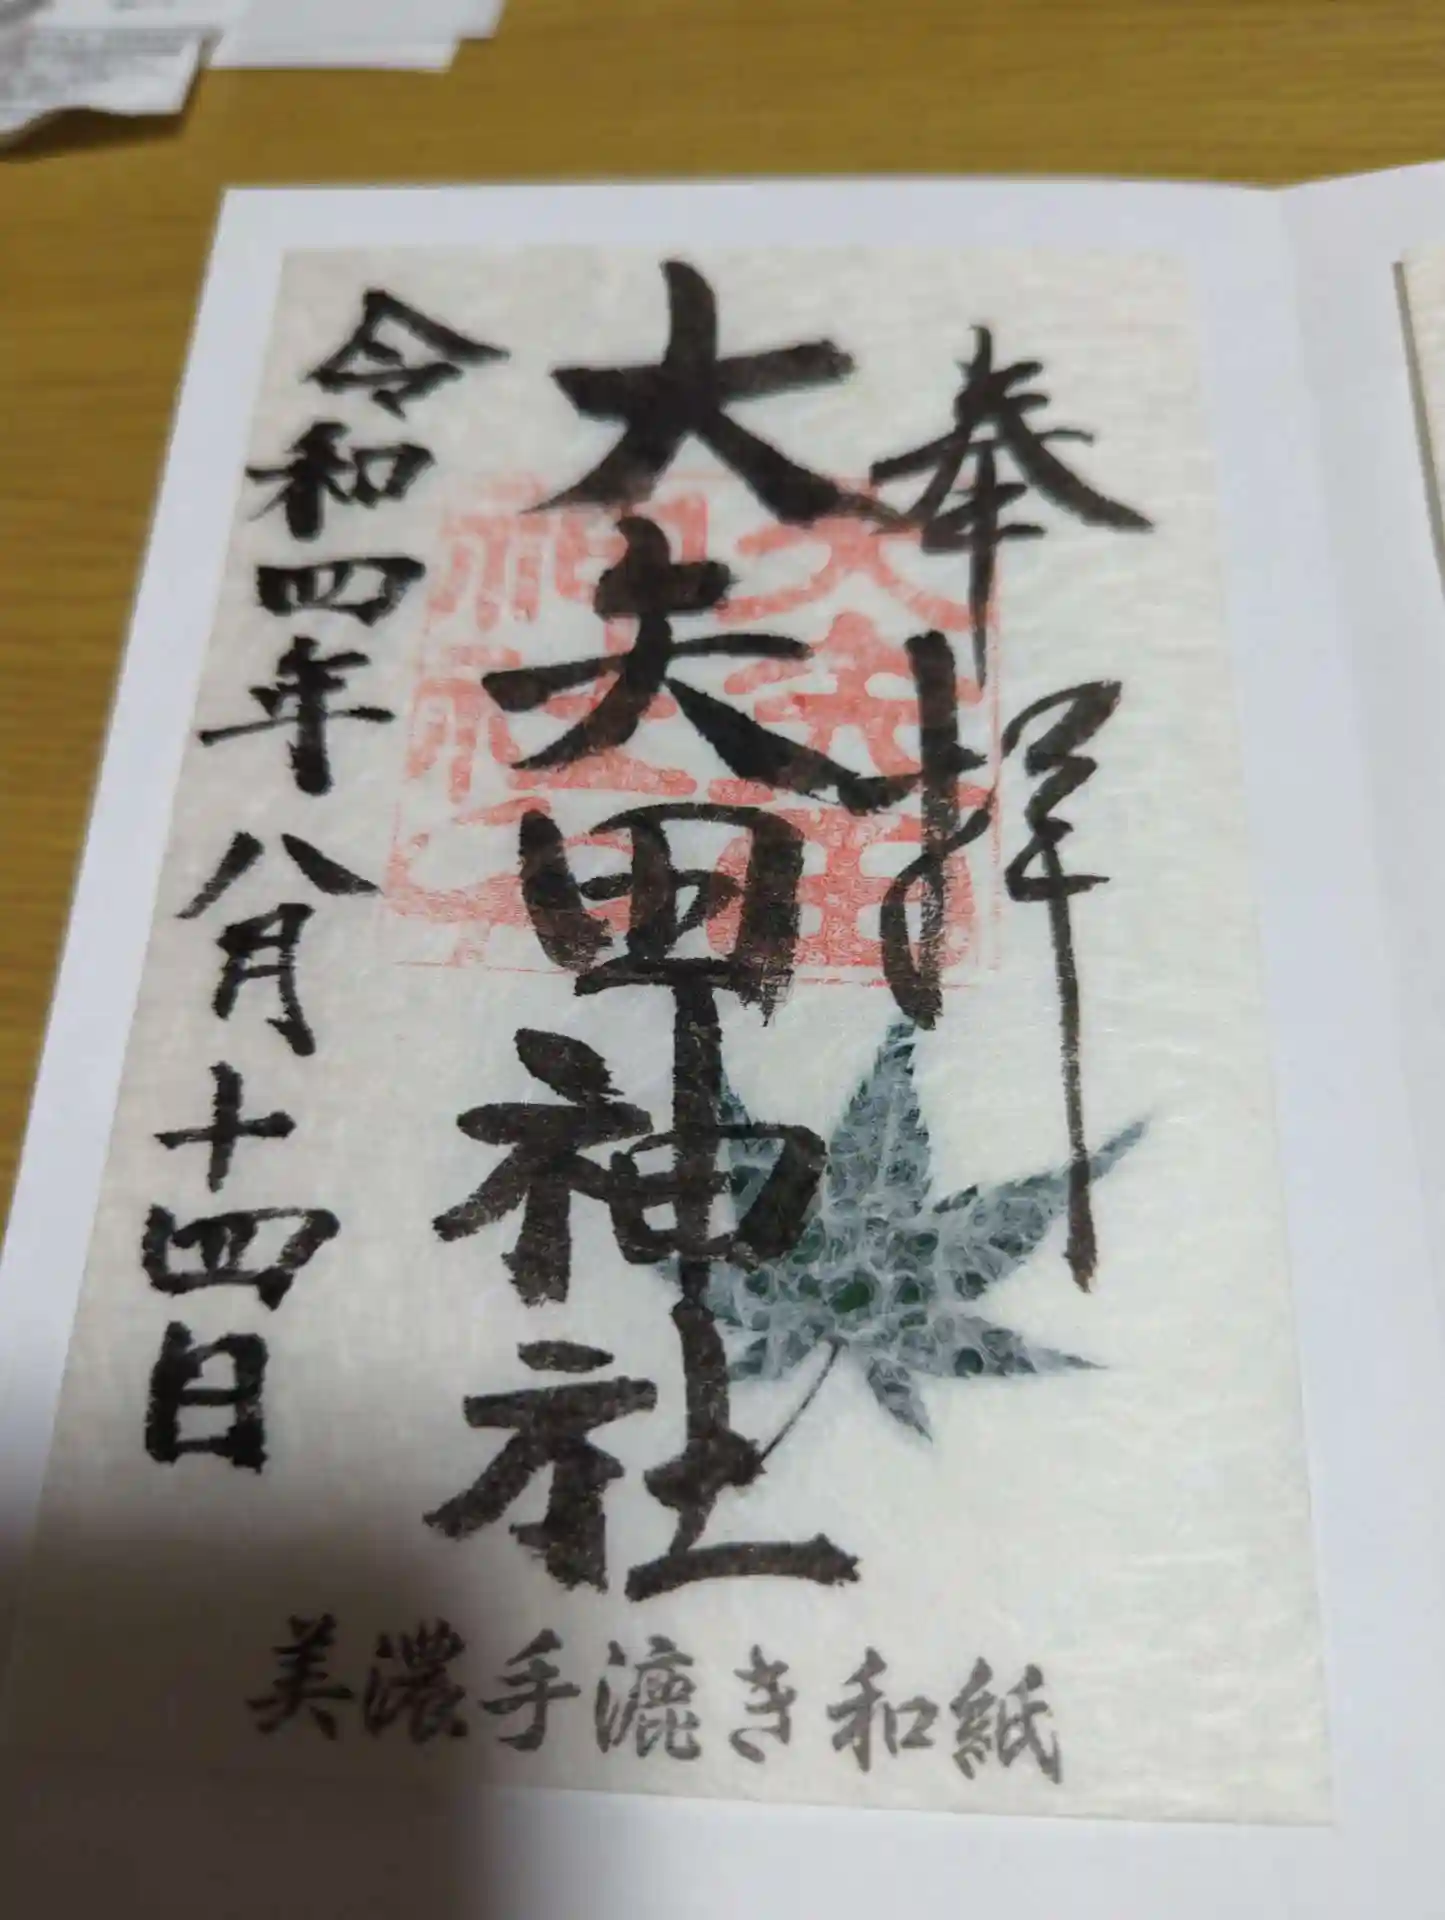 奉拝
大矢田神社
令和四年八月十四日
大矢田
神社
美濃手漉き和紙